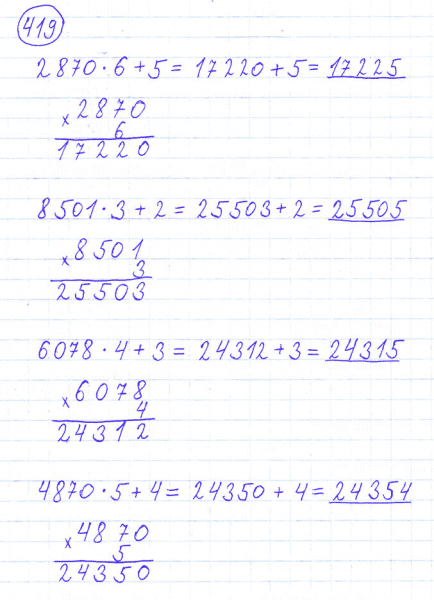 419
2870 · 6 + 5 = 17220 + 5 = 17225
× 2870
6
17220
8501 · 3 + 2 = 25503 + 2 = 25505
× 8501
3
25503
6078 · 4 + 3 = 24312 + 3 = 24315
× 6078
4
24312
4870 · 5 + 4 = 24350 + 4 = 24354
× 4870
5
24350